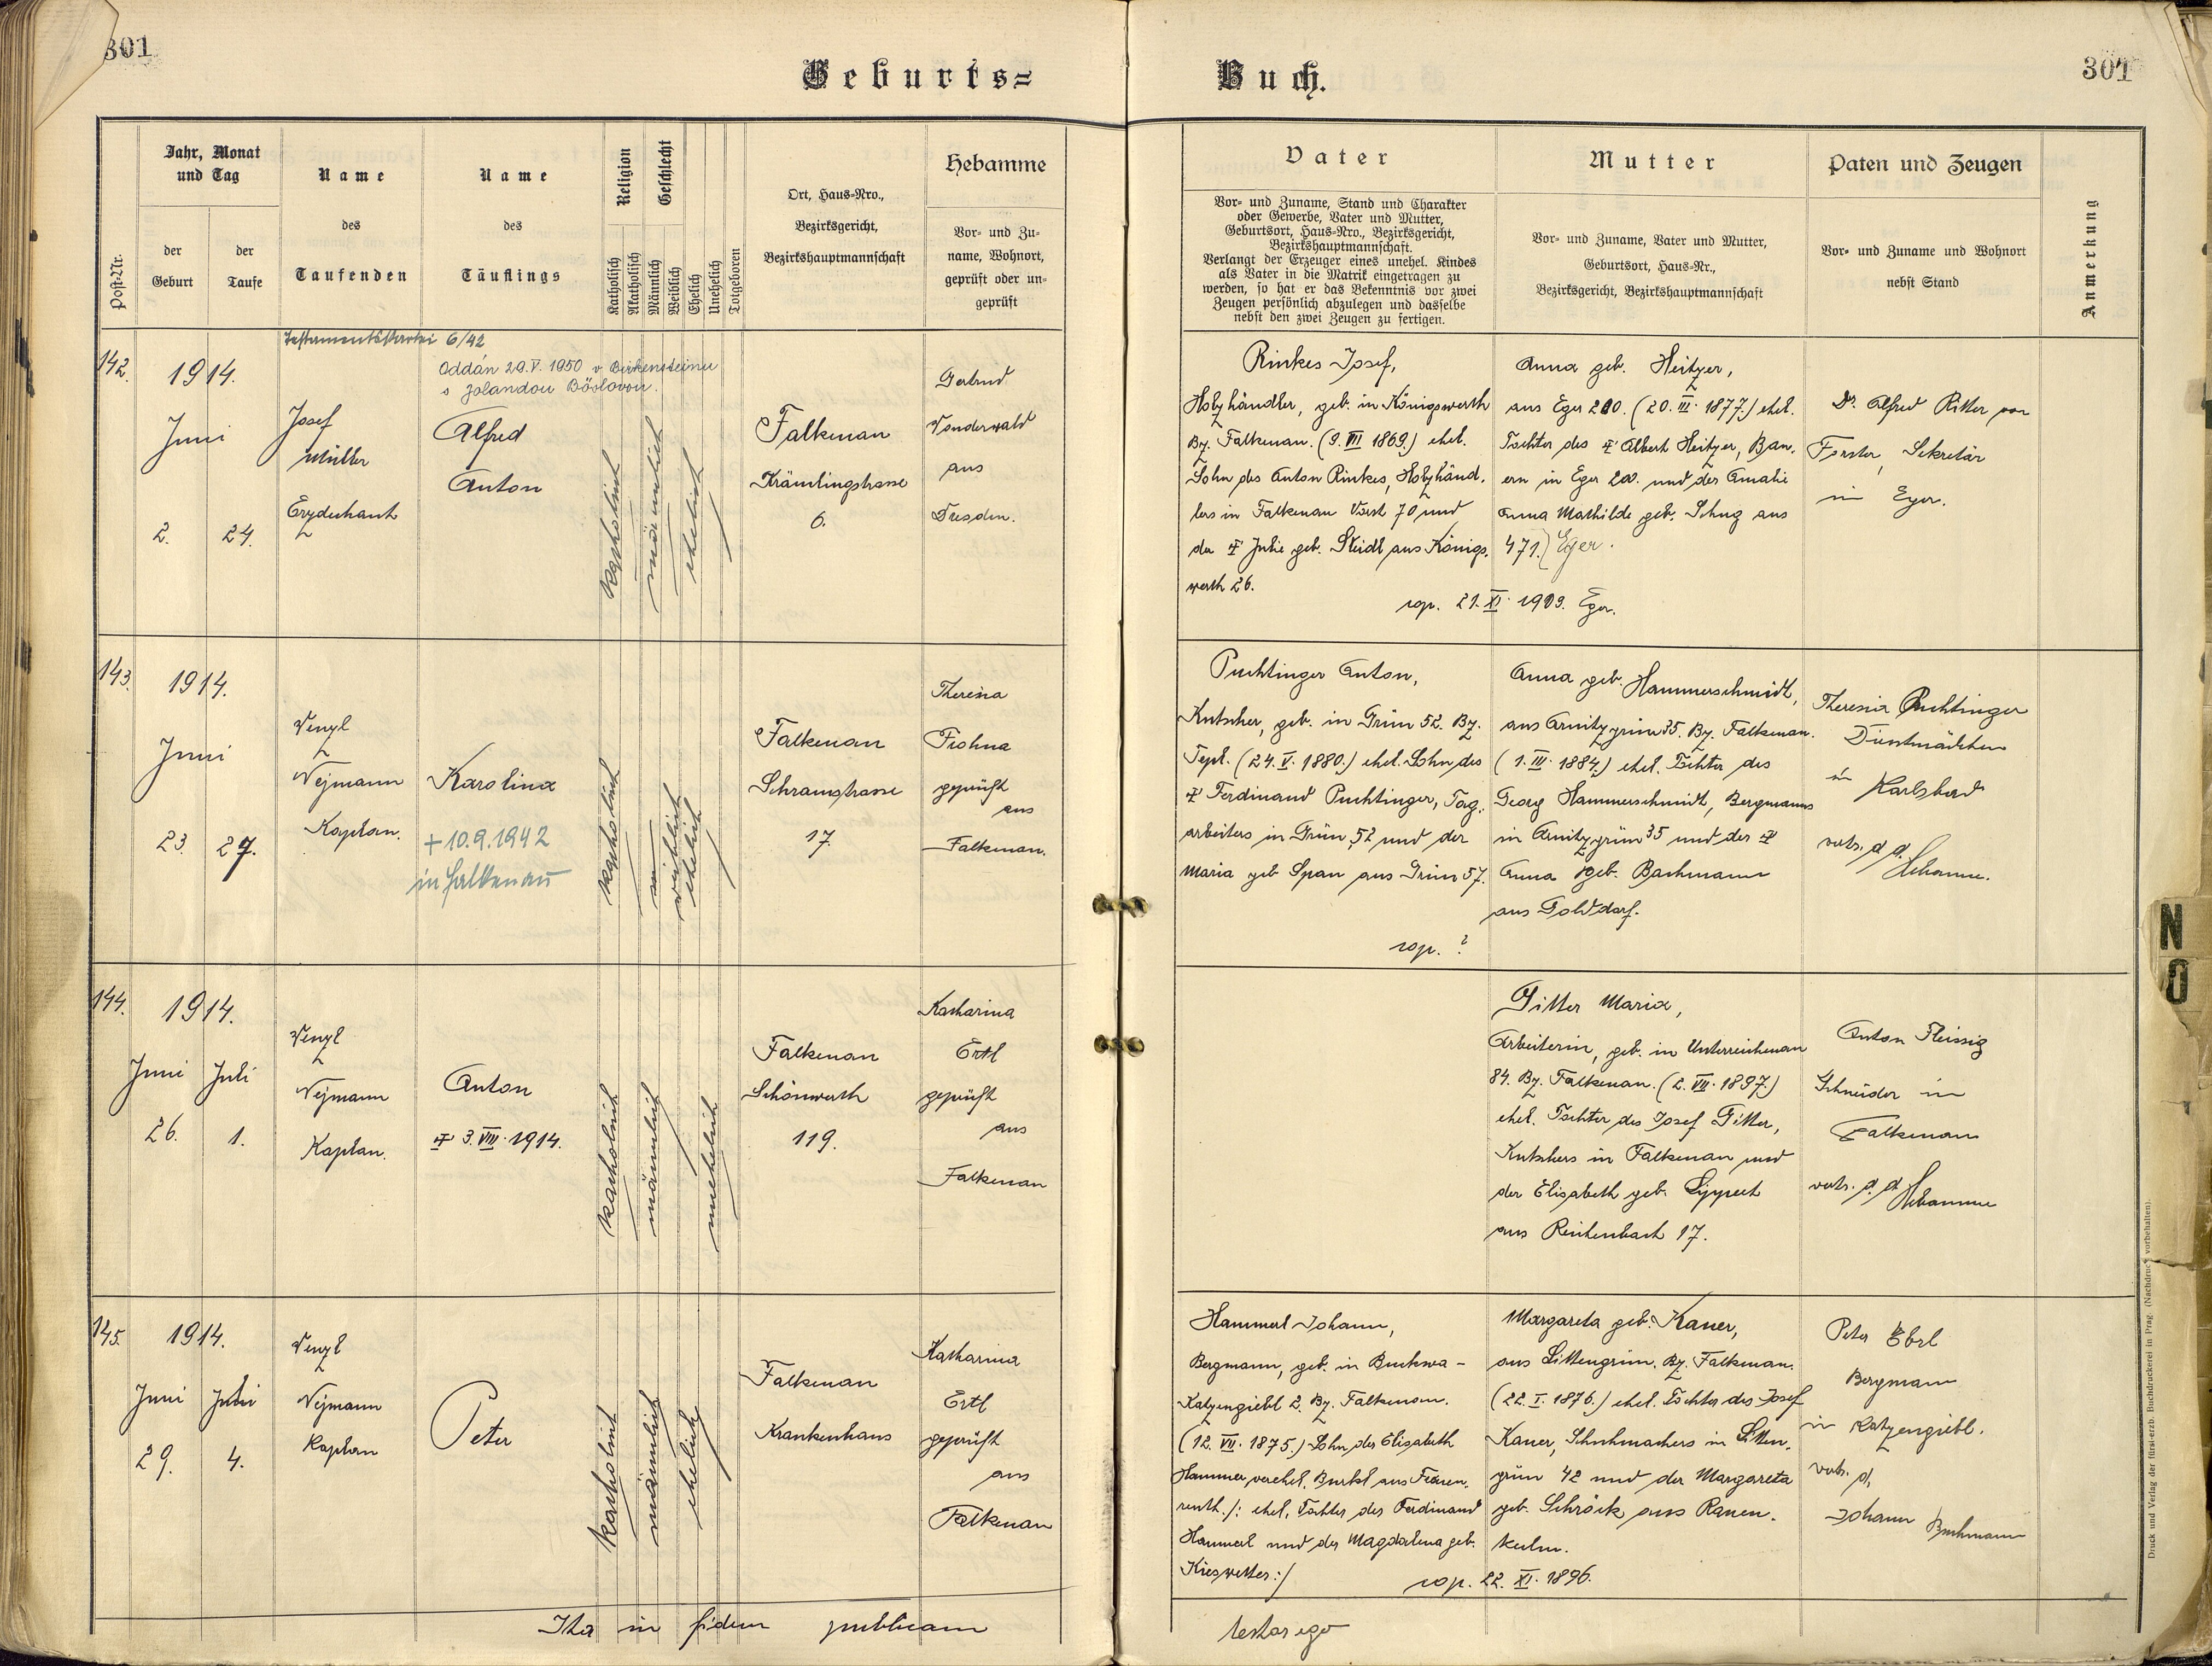 301
Geburts=
Post-Nr.
Jahr, Monat
und Tag
der
Geburt
der
Taufe
Name
des
Taufenden
Name
des
Täuflings
Religion
Geschlecht
Katholisch
Akatholisch
Männlich
Weiblich
Ehelich
Unehelich
Totgeboren
Ort, Haus-Nro.,
Bezirksgericht,
Bezirkshauptmannschaft
Hebamme
Vor- und Zu-
name, Wohnort,
geprüft oder un-
geprüft
142.
1914.
Juni
2.
24.
Testamentskartei 6/42
Josef
Müller
Erzdechant
Oddán 29.V. 1950 v Birkensteinu
s Jolandou Böslovou.
Alfred
Anton
katholisch
männlich
ehelich
Falkenau
Krämlingstrasse
6.
Gertrud
Vonderwald
aus
Dresden.
143.
1914.
Juni
23.
27.
Venzl
Wejmann
Kaplan.
Karolina
+ 10.9.1942
in Falkenau
katholisch
weiblich
ehelich
Falkenau
Schramstrasse
17.
Theresia
Frohna
geprüft
aus
Falkenau.
144.
1914.
Juni
Juli
26.
1.
Venzl
Wejmann
Kaplan.
Anton
3. VIII. 1914.
katholisch
männlich
unehelich
Falkenau
Schönwerth
119.
Katharina
Ertl
geprüft
aus
Falkenau
145.
1914.
Juni
Juli
29.
4.
Venzl
Wejmann
Kaplan
Peter
katholisch
männlich
ehelich
Falkenau
Krankenhaus
Katharina
Ertl
geprüft
aus
Falkenau
Ita in fidem publicam
Buch.
301
Vater
Vor- und Zuname, Stand und Charakter
oder Gewerbe, Vater und Mutter,
Geburtsort, Haus-Nro., Bezirksgericht,
Bezirkshauptmannschaft.
Verlangt der Erzeuger eines unehel. Kindes
als Vater in die Matrik eingetragen zu
werden, so hat er das Bekenntnis vor zwei
Zeugen persönlich abzulegen und dasselbe
nebst den zwei Zeugen zu fertigen.
Mutter
Vor- und Zuname, Vater und Mutter,
Geburtsort, Haus-Nr.,
Bezirksgericht, Bezirkshauptmannschaft
Paten und Zeugen
Vor- und Zuname und Wohnort
nebst Stand
Anmerkung
Rinkes Josef,
Holzhändler, geb. in Königswerth
Bz. Falkenau. (9. VII 1869.) ehel.
Sohn des Anton Rinkes, Holzhänd.
lers in Falkenau Vorst 70 und
der Julie geb. Steidl aus Königs.
werth 26.
Anna geb. Heitzer,
aus Eger 200. (20. III. 1877.) ehel.
Tochter des Albert Heitzer, Bau.
ern in Eger 200. und der Amalie
Anna Mathilde geb. Schug aus
471.) Eger.
cop. 21. XI. 1909. Eger.
Dr. Alfred Ritter von
Forster, Sekretär
in Eger.
Puchtinger Anton,
Kutscher, geb. in Grün 52. Bz.
Tepl. (24. V. 1880.) ehel. Sohn des
Ferdinand Puchtinger, Tag.
arbeiters in Grün 52 und der
Maria geb Span aus Grün 57.
Anna geb. Hammerschmidt,
aus Arnitzgrün 35. Bz. Falkenau.
(1. III. 1884.) ehel. Tochter des
Georg Hammerschmidt, Bergmanns
in Arnitzgrün 35 und der
Anna geb. Bachmann
aus Golddorf.
cop. ?
Theresia Puchtinger
Dienstmädchen
in Karlsbad
vertr. d. d.
Hebamme.
Gitter Maria,
Arbeiterin, geb. in Unterreichenau
84. Bz. Falkenau. (2. VII. 1897.)
ehel. Tochter des Josef Gitter,
Kutschers in Falkenau und
der Elisabeth geb. Lippert
aus Reichenbach 17.
Anton Fleissig
Schneider in
Falkenau
vertr. d. d.
Hebamme
Hammerl Johann,
Bergmann, geb. in Buckwa-
Katzengiebl 2. Bz. Falkenau.
(12. VII. 1875.) Sohn der Elisabeth
Hammer verehel. Burkl aus Frauen.
reuth. /: ehel. Tochter des Ferdinand
Hammerl und der Magdalena geb.
Kieswetter :/
Margareta geb. Kauer,
aus Littengrün. Bz. Falkenau.
(22. I. 1876.) ehel. Tochter des Josef
Kauer, Schuhmachers in Litten.
grün 42 und der Margareta
geb. Schröck aus Rauen.
kulm.
cop. 22. XI. 1896.
Peter Ebrl
Bergmann
in Katzengiebl.
vertr. d.
Johann Buchmann
testor ego
Druck und Verlag der fürst-erzb. Buchdruckerei in Prag. (Nachdruck vorbehalten).
N
O